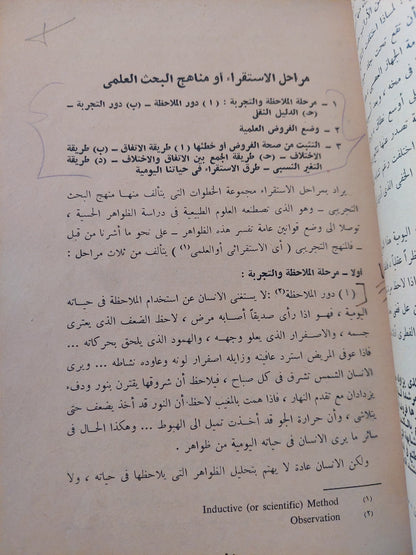 مراحل الاستقراء أو مناهج البحث العلمى
١ – مرحلة الملاحظة والتجربة : (ا) دور الملاحظة – (ب) دور التجربة –
(ح) الدليل النقل
٢ – وضع الفروض العلمية
٣ – التثبت من صحة الفروض أو خطئها (ا) طريقة الاتفاق – (ب) طريقة
الاختلاف – (ح) طريقة الجمع بين الاتفاق والاختلاف – (د) طريقة
التغير النسبى – طرق الاستقراء فى حياتنا اليومية
يراد بمراحل الاستقراء مجموعة الخطوات التى يتألف منها منهج البحث
التجريبى – وهو الذى تصطنعه العلوم الطبيعية فى دراسة الظواهر الحسية ،
توصلا الى وضع قوانين عامة تفسر هذه الظواهر – على نحو ما أشرنا من قبل
– فالمنهج التجريبى ( أى الاستقرائى أوالعلمى (١) ) يتألف من ثلاث مراحل :
اولا – مرحلة الملاحظة والتجربة :
(١) دور الملاحظة (٢) : لا يستغنى الانسان عن استخدام الملاحظة فى حياته
اليومية ، فهو اذا رأى صديقاً أصابه مرض ، لاحظ الضعف الذى يعترى
جسمه ، والاصفرار الذى يعلو وجهه ، والهمود الذى يلحق بحركاته ...
فاذا عوفى المريض استرد عافيته وزايله اصفرار لونه وعاوده نشاطه ... ويرى
الانسان الشمس تشرق فى كل صباح ، فيلاحظ أن شروقها يقترن بنور ودفء
يزدادان مع تقدم النهار ، فاذا همت بالمغيب لاحظ أن النور قد أخذ يضعف حتى
يتلاشى ، وأن حرارة الجو قد أخذت تميل الى الهبوط ... وهكذا الحال فى
سائر ما يرى الانسان فى حياته اليومية من ظواهر .
ولكن الانسان عادة لا يهتم بتحليل الظواهر التى يلاحظها فى حياته ، ولا
(١) Inductive (or scientific) Method
(٢) Observation